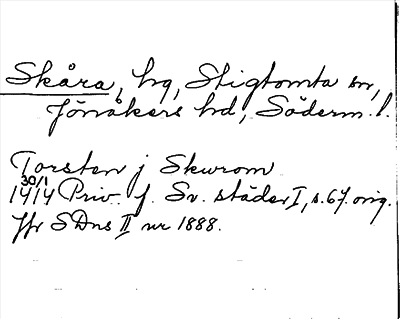 Skåra, hg, Stigtomta sn,
Jönåkers hd, Söderm. l.
Torsten j Skurom
30/1
1414 Priv. f. Sv. städer I, s. 67. orig.
Jfr SDns II nr 1888.